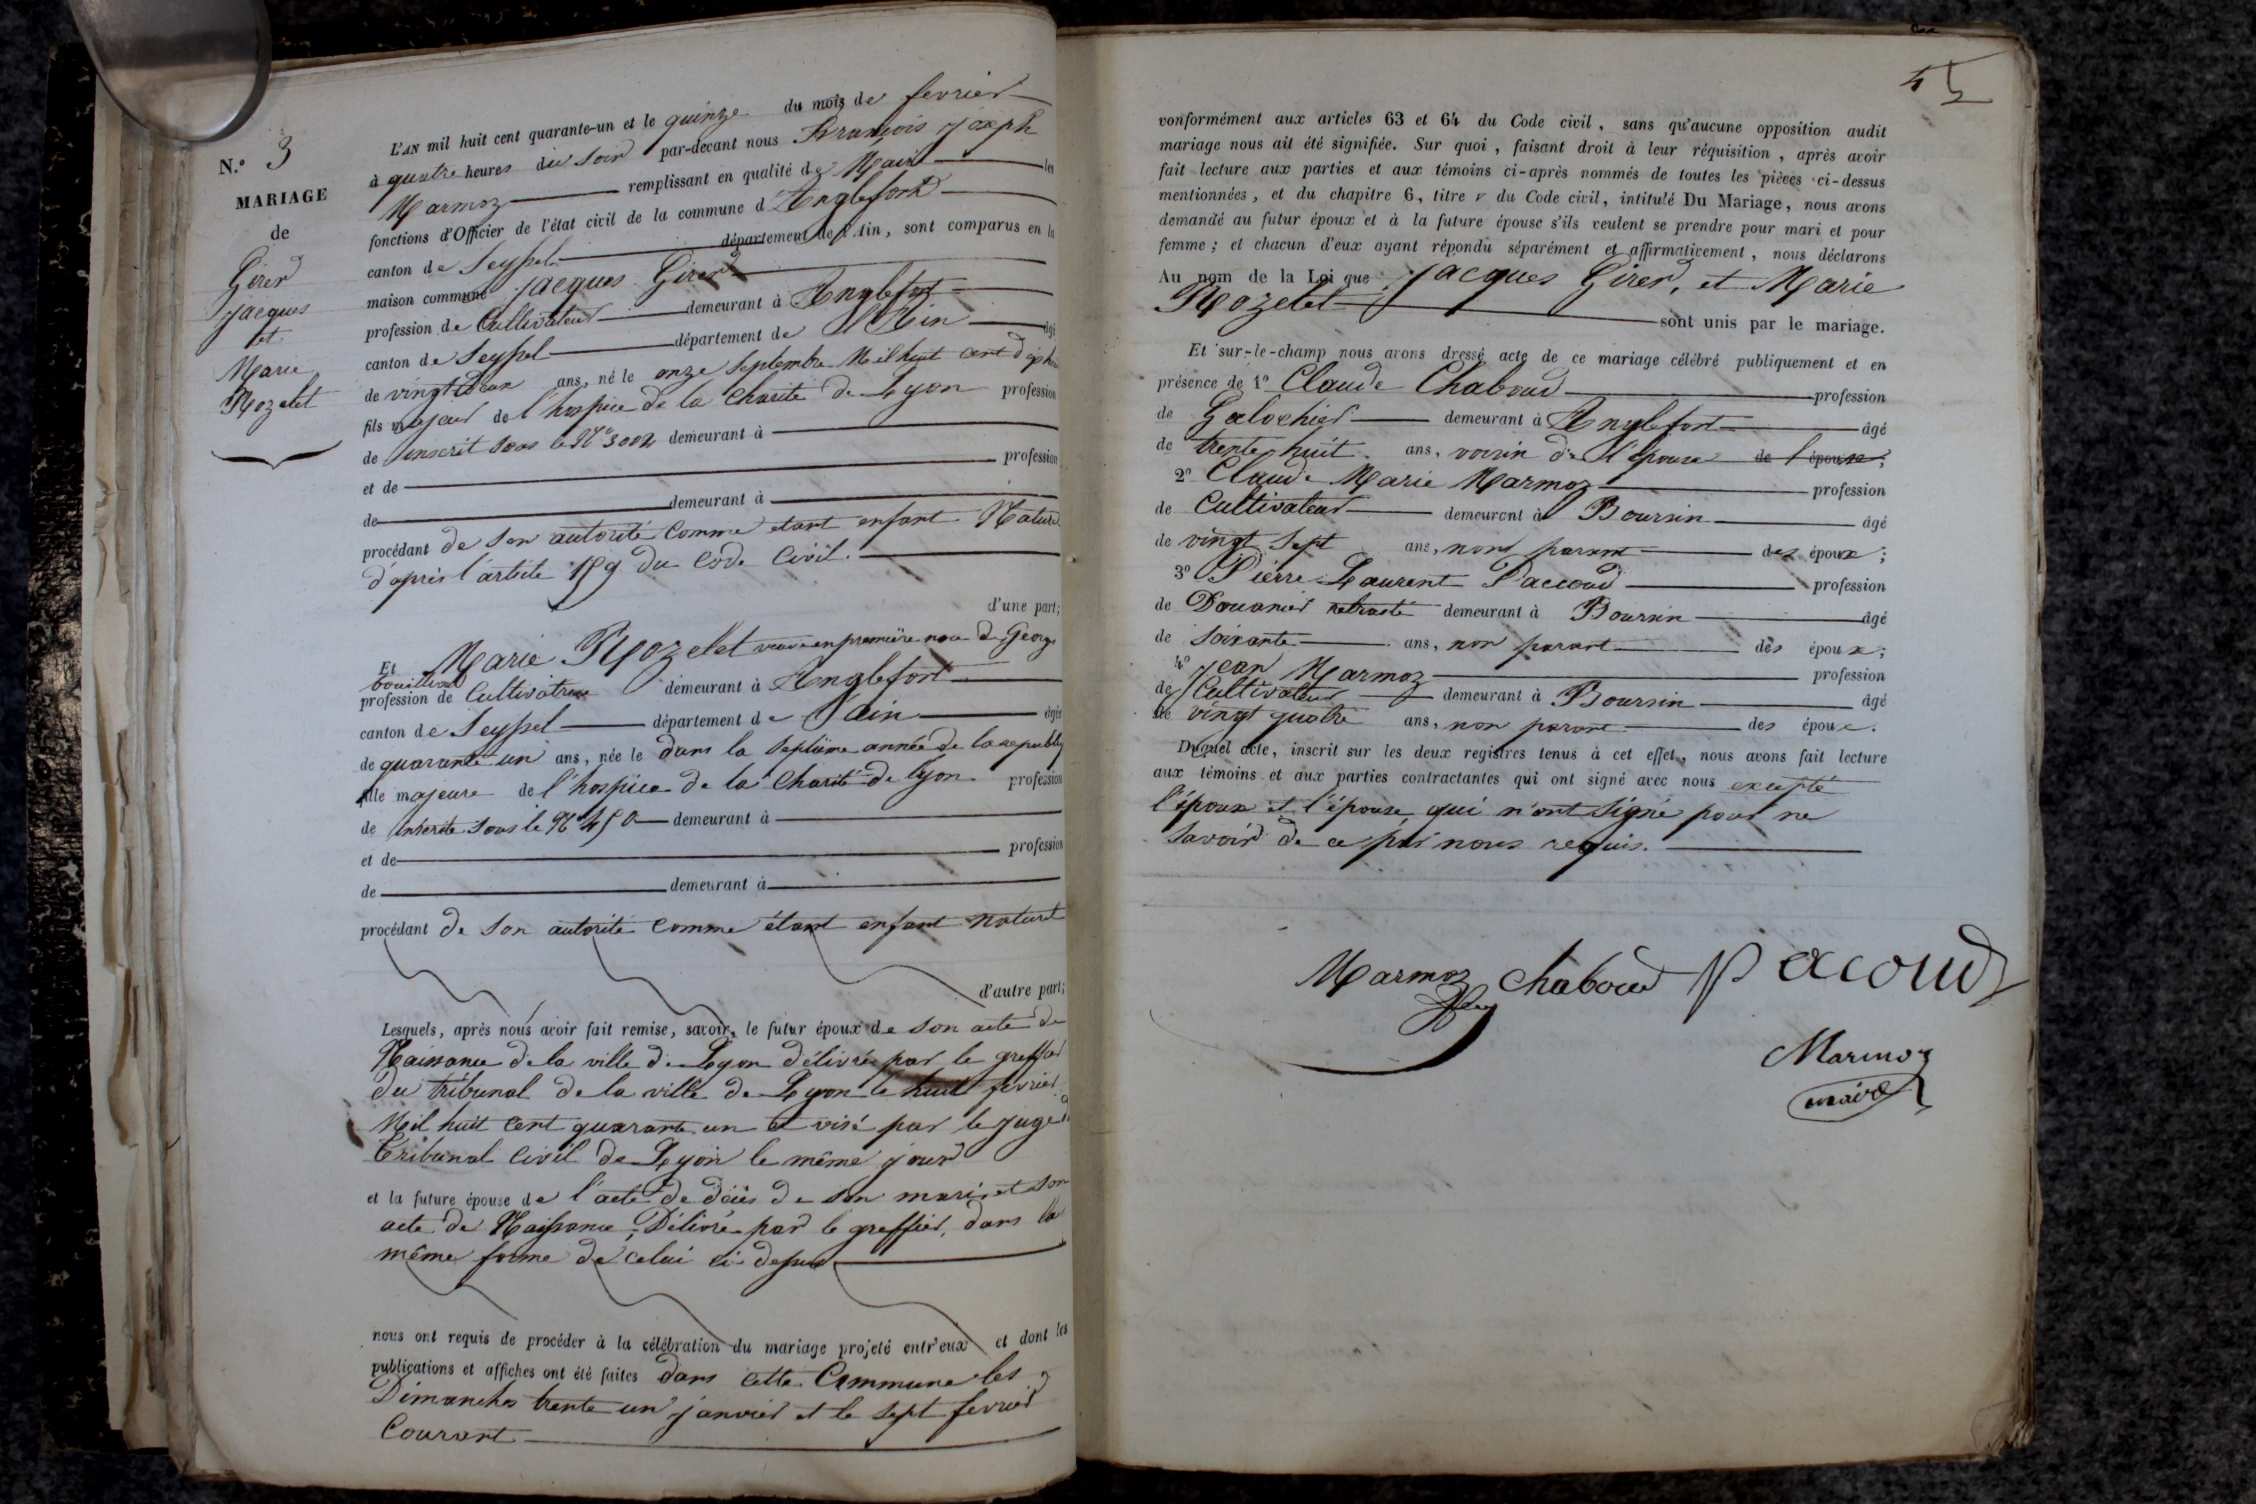 N.º 3
MARIAGE
de
Girerd
Jacques
et
Marie
Rozelet
L'AN mil huit cent quarante-un et le quinze du mois de fevrier
à quatre heures du soir par-devant nous François Joseph
Marmoz remplissant en qualité de Maire les
fonctions d'Officier de l'état civil de la commune d'Anglefort
canton de Seyssel département de l'Ain, sont comparus en la
maison commune Jacques Girerd
profession de Cultivateur demeurant à Anglefort
canton de Seyssel département de l'Ain âgé
de vingt deux ans, né le onze Septembre Mil huit cent dix huit
fils majeur de l'hospice de la Charité de Lyon profession
de inscrit sous le Nº 3002 demeurant à
et de profession
de demeurant à
procédant de son autorité comme etant enfant Naturel
d'après l'article 159 du Code Civil.
d'une part;
Et Marie Rozelet veuve en première noce de George
bouillod
profession de Cultivatrice demeurant à Anglefort
canton de Seyssel département de l'ain âgée
de quarante un ans, née le dans la septième année de la republiq
fille majeure de l'hospice de la Charité de Lyon profession
de inscrite sous le Nº 450 demeurant à
et de profession
de demeurant à
procédant de son autorité comme étant enfant naturel
d'autre part;
Lesquels, après nous avoir fait remise, savoir, le futur époux de son acte de
Naissance de la ville de Lyon délivré par le greffier
du tribunal de la ville de Lyon le huit fevrier
Mil huit cent quarante un et visé par le juge d
Tribunal Civil de Lyon le même jour
et la future épouse de l'acte de décès de son mari et son
acte de Naissance, Délivré par le greffier, dans la
même forme de celui ci-dessus
nous ont requis de procéder à la célébration du mariage projeté entr'eux et dont les
publications et affiches ont été faites dans cette Commune les
Dimanches trente un janvier et le sept fevrier
Courant
45
conformément aux articles 63 et 64 du Code civil, sans qu'aucune opposition audit
mariage nous ait été signifiée. Sur quoi, faisant droit à leur réquisition, après avoir
fait lecture aux parties et aux témoins ci-après nommés de toutes les pièces ci-dessus
mentionnées, et du chapitre 6, titre v du Code civil, intitulé Du Mariage, nous avons
demandé au futur époux et à la future épouse s'ils veulent se prendre pour mari et pour
femme; et chacun d'eux ayant répondu séparément et affirmativement, nous déclarons
Au nom de la Loi que Jacques Girerd, et Marie
Rozelet sont unis par le mariage.
Et sur-le-champ nous avons dressé acte de ce mariage célébré publiquement et en
présence de 1º Claude Chaboud profession
de Galochier demeurant à Anglefort âgé
de trente huit ans, voisin de l'épouse de l'épouse;
2º Claude Marie Marmoz profession
de Cultivateur demeurant à Boursin âgé
de vingt sept ans, non parant des époux;
3º Pierre Laurent Paccoud profession
de Douanier retraité demeurant à Boursin âgé
de soixante ans, non parant des époux;
4º Jean Marmoz profession
de Cultivateur demeurant à Boursin âgé
de vingt quatre ans, non parant des époux.
Duquel acte, inscrit sur les deux registres tenus à cet effet, nous avons fait lecture
aux témoins et aux parties contractantes qui ont signé avec nous excepté
l'époux et l'épouse qui n'ont signé pour ne
savoir de ce par nous requis.
Marmoz Chaboud Pacoud
Marmoz
maire